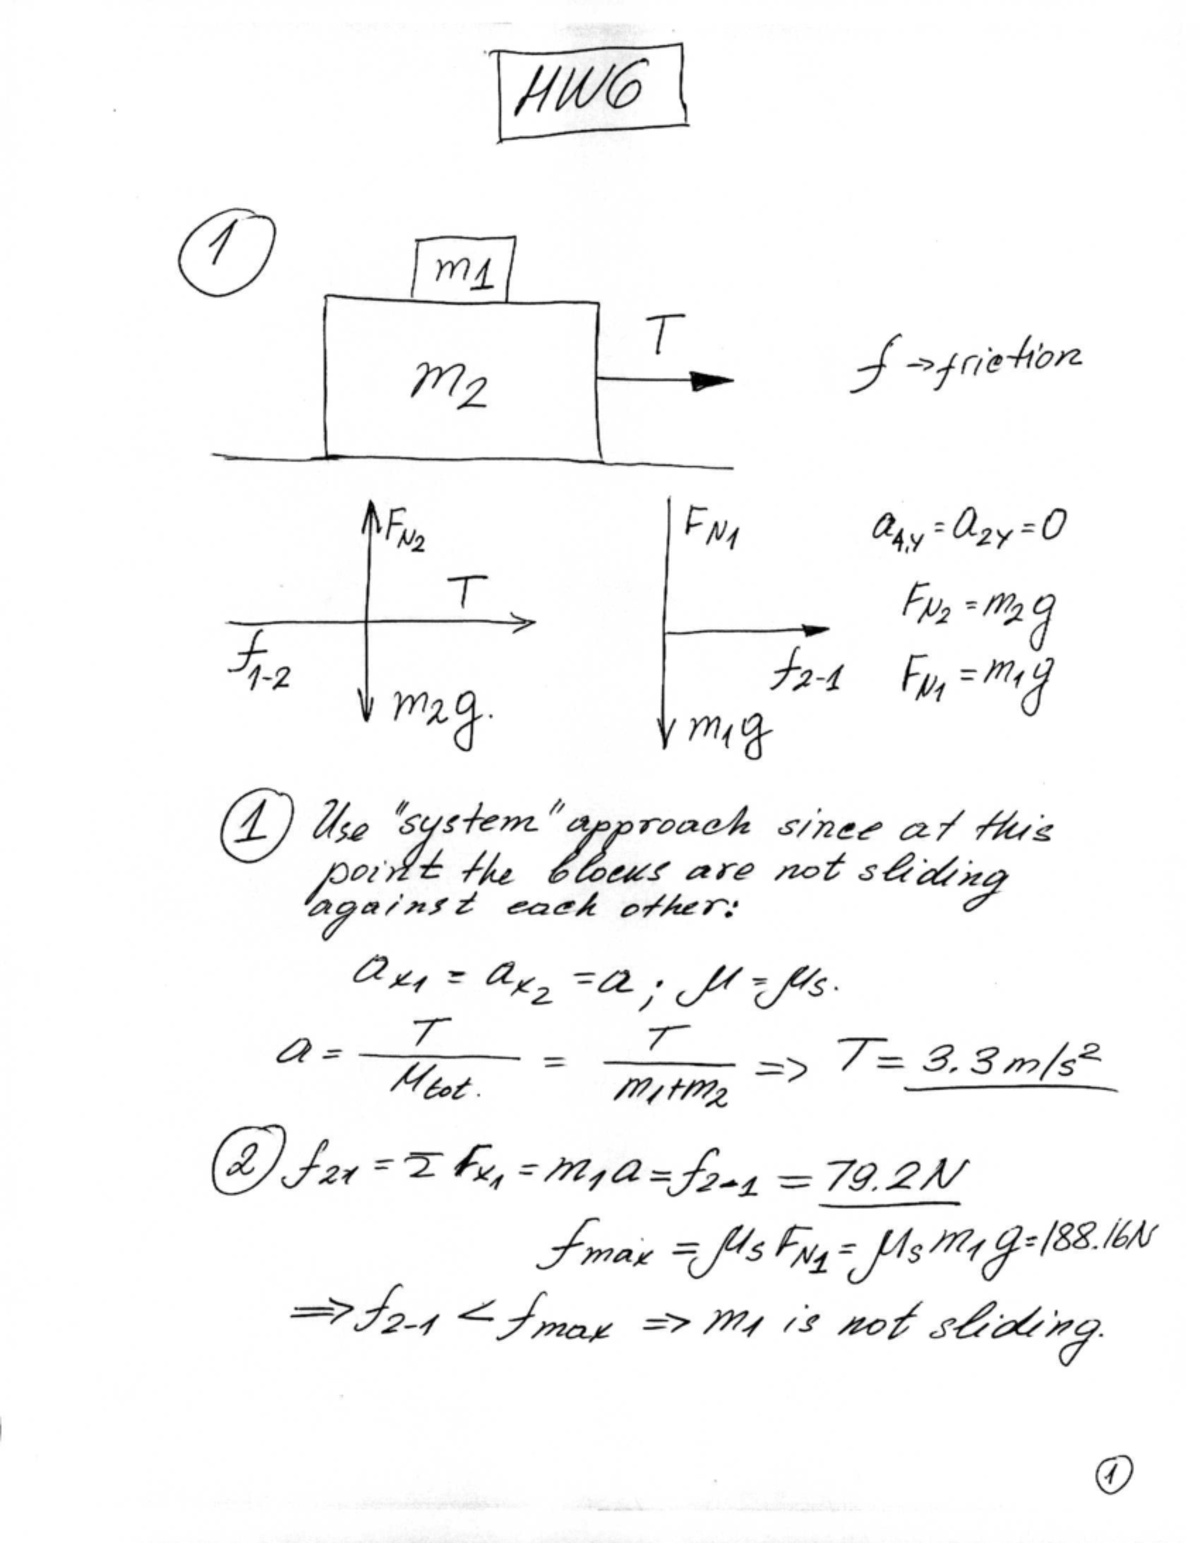 HW6
1
m1
m2
T
f → friction
FN2
T
f1-2
m2g.
FN1
f2-1
m1g
a1,y = a2y = 0
FN2 = m2g
FN1 = m1g
1 Use "system" approach since at this
point the blocks are not sliding
against each other:
ax1 = ax2 = a ; μ = μs.
a = T / Mtot. = T / m1+m2 => T = 3.3 m/s²
2 f21 = Σ Fx1 = m1a = f2-1 = 79.2N
fmax = μs FN1 = μs m1g = 188.16N
=> f2-1 < fmax => m1 is not sliding.
1